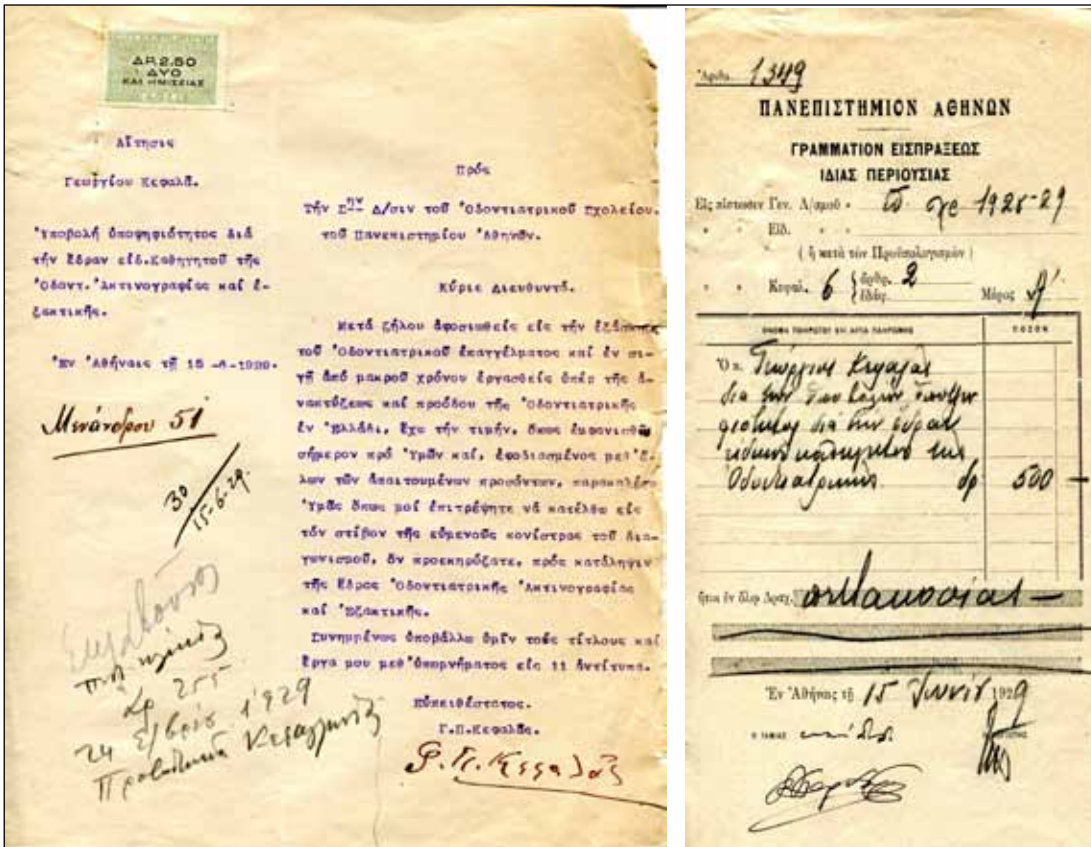 ΔΡ. 2.50
ΔΥΟ
ΚΑΙ ΗΜΙΣΕΙΑΣ
Αἴτησις
Γεωργίου Κεφαλᾶ.
Ὑποβολή ὑποψηφιότητος διά
τήν ἕδραν εἰδ.Καθηγητοῦ τῆς
Ὀδοντ.Ἀκτινογραφίας καί ἐ-
ξακτικῆς.
Ἐν Ἀθήναις τῇ 15 -6-1929.
Μενάνδρου 51
30
15-6-29
Δρ 255
24 1929
Πρός
Τήν Σην Δ/σιν τοῦ Ὀδοντιατρικοῦ Σχολείου.
τοῦ Πανεπιστημίου Ἀθηνῶν.
Κύριε Διευθυντά.
Μετά ζήλου ἀφοσιωθείς εἰς τήν ἐξάσκησιν
τοῦ Ὀδοντιατρικοῦ ἐπαγγέλματος καί ἐν σι-
γῇ ἀπό μακροῦ χρόνου ἐργασθείς ὑπέρ τῆς ἀ-
νακτύξεως καί προόδου τῆς Ὀδοντιατρικῆς
ἐν Ἑλλάδι, ἔχω τήν τιμήν, ὅπως ἐμφανισθῶ
σήμερον πρό Ὑμῶν καί, ἐφοδιασμένος μεθ'ὅ-
λων τῶν ἀπαιτουμένων προσόντων, παρακαλέσω
Ὑμᾶς ὅπως μοί ἐπιτρέψητε νά κατέλθω εἰς
τόν στίβον τῆς εὐμενοῦς κονίστρας τοῦ δια-
γωνισμοῦ, ὅν προεκηρύξατε, πρός κατάληψιν
τῆς ἕδρας Ὀδοντιατρικῆς Ἀκτινογραφίας
καί Ἐξακτικῆς.
Συνημμένως ὑποβάλλω ὑμῖν τούς τίτλους καί
ἔργα μου μεθ'ὑπομνήματος εἰς 11 ἀντίτυπα.
Εὐπειθέστατος.
Γ.Π.Κεφαλᾶς.
Γ. Π. Κεφαλᾶς
Ἀριθ. 1349
ΠΑΝΕΠΙΣΤΗΜΙΟΝ ΑΘΗΝΩΝ
ΓΡΑΜΜΑΤΙΟΝ ΕΙΣΠΡΑΞΕΩΣ
ΙΔΙΑΣ ΠΕΡΙΟΥΣΙΑΣ
Εἰς πίστωσιν Γεν. Λ/σμοῦ » 1928-29
» » Εἰδ. » »
( ἤ κατά τόν Προϋπολογισμόν )
» » Κεφαλ. 6 { ἄρθρ. 2 ἐδάφ. Μέρος Α'
ΟΝΟΜΑ ΠΛΗΡΩΤΟΥ ΚΑΙ ΑΙΤΙΑ ΠΛΗΡΩΜΗΣ ΠΟΣΟΝ
Ὁ κ. Γεώργιος Κεφαλᾶς
διά τήν ὑποβολήν ὑποψη
φιότητος διά τήν ἕδραν
εἰδικοῦ καθηγητοῦ τῆς
Ὀδοντιατρικῆς δρ 500 —
ἤτοι ἐν ὅλῳ Δραχ. πεντακοσίας —
Ἐν Ἀθήναις τῇ 15 Ἰουνίου 1929
Ο ΤΑΜΙΑΣ